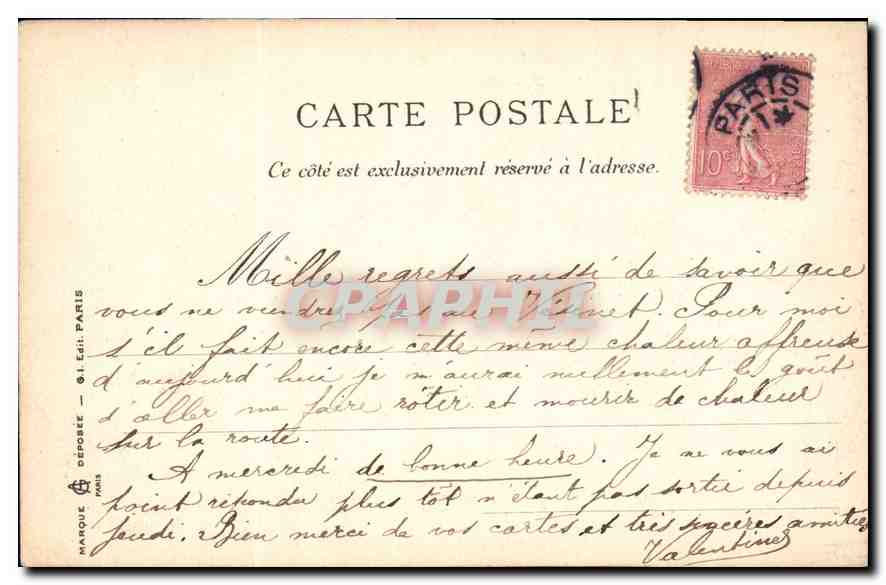 CARTE POSTALE
Ce côté est exclusivement réservé à l'adresse.
PARIS
10c
Mille regrets aussi de savoir que
vous ne viendrez pas au Vésinet. Pour moi
s'il fait encore cette même chaleur affreuse
d'aujourd'hui je n'aurai nullement le goût
d'aller me faire rôtir et mourir de chaleur
sur la route.
A mercredi de bonne heure. Je ne vous ai
point répondu plus tôt n'étant pas sortie depuis
jeudi. Bien merci de vos cartes et très sincères amitiés
Valentine
MARQUE DÉPOSÉE — G.I. Edit. PARIS
PARIS
CPAPHIL